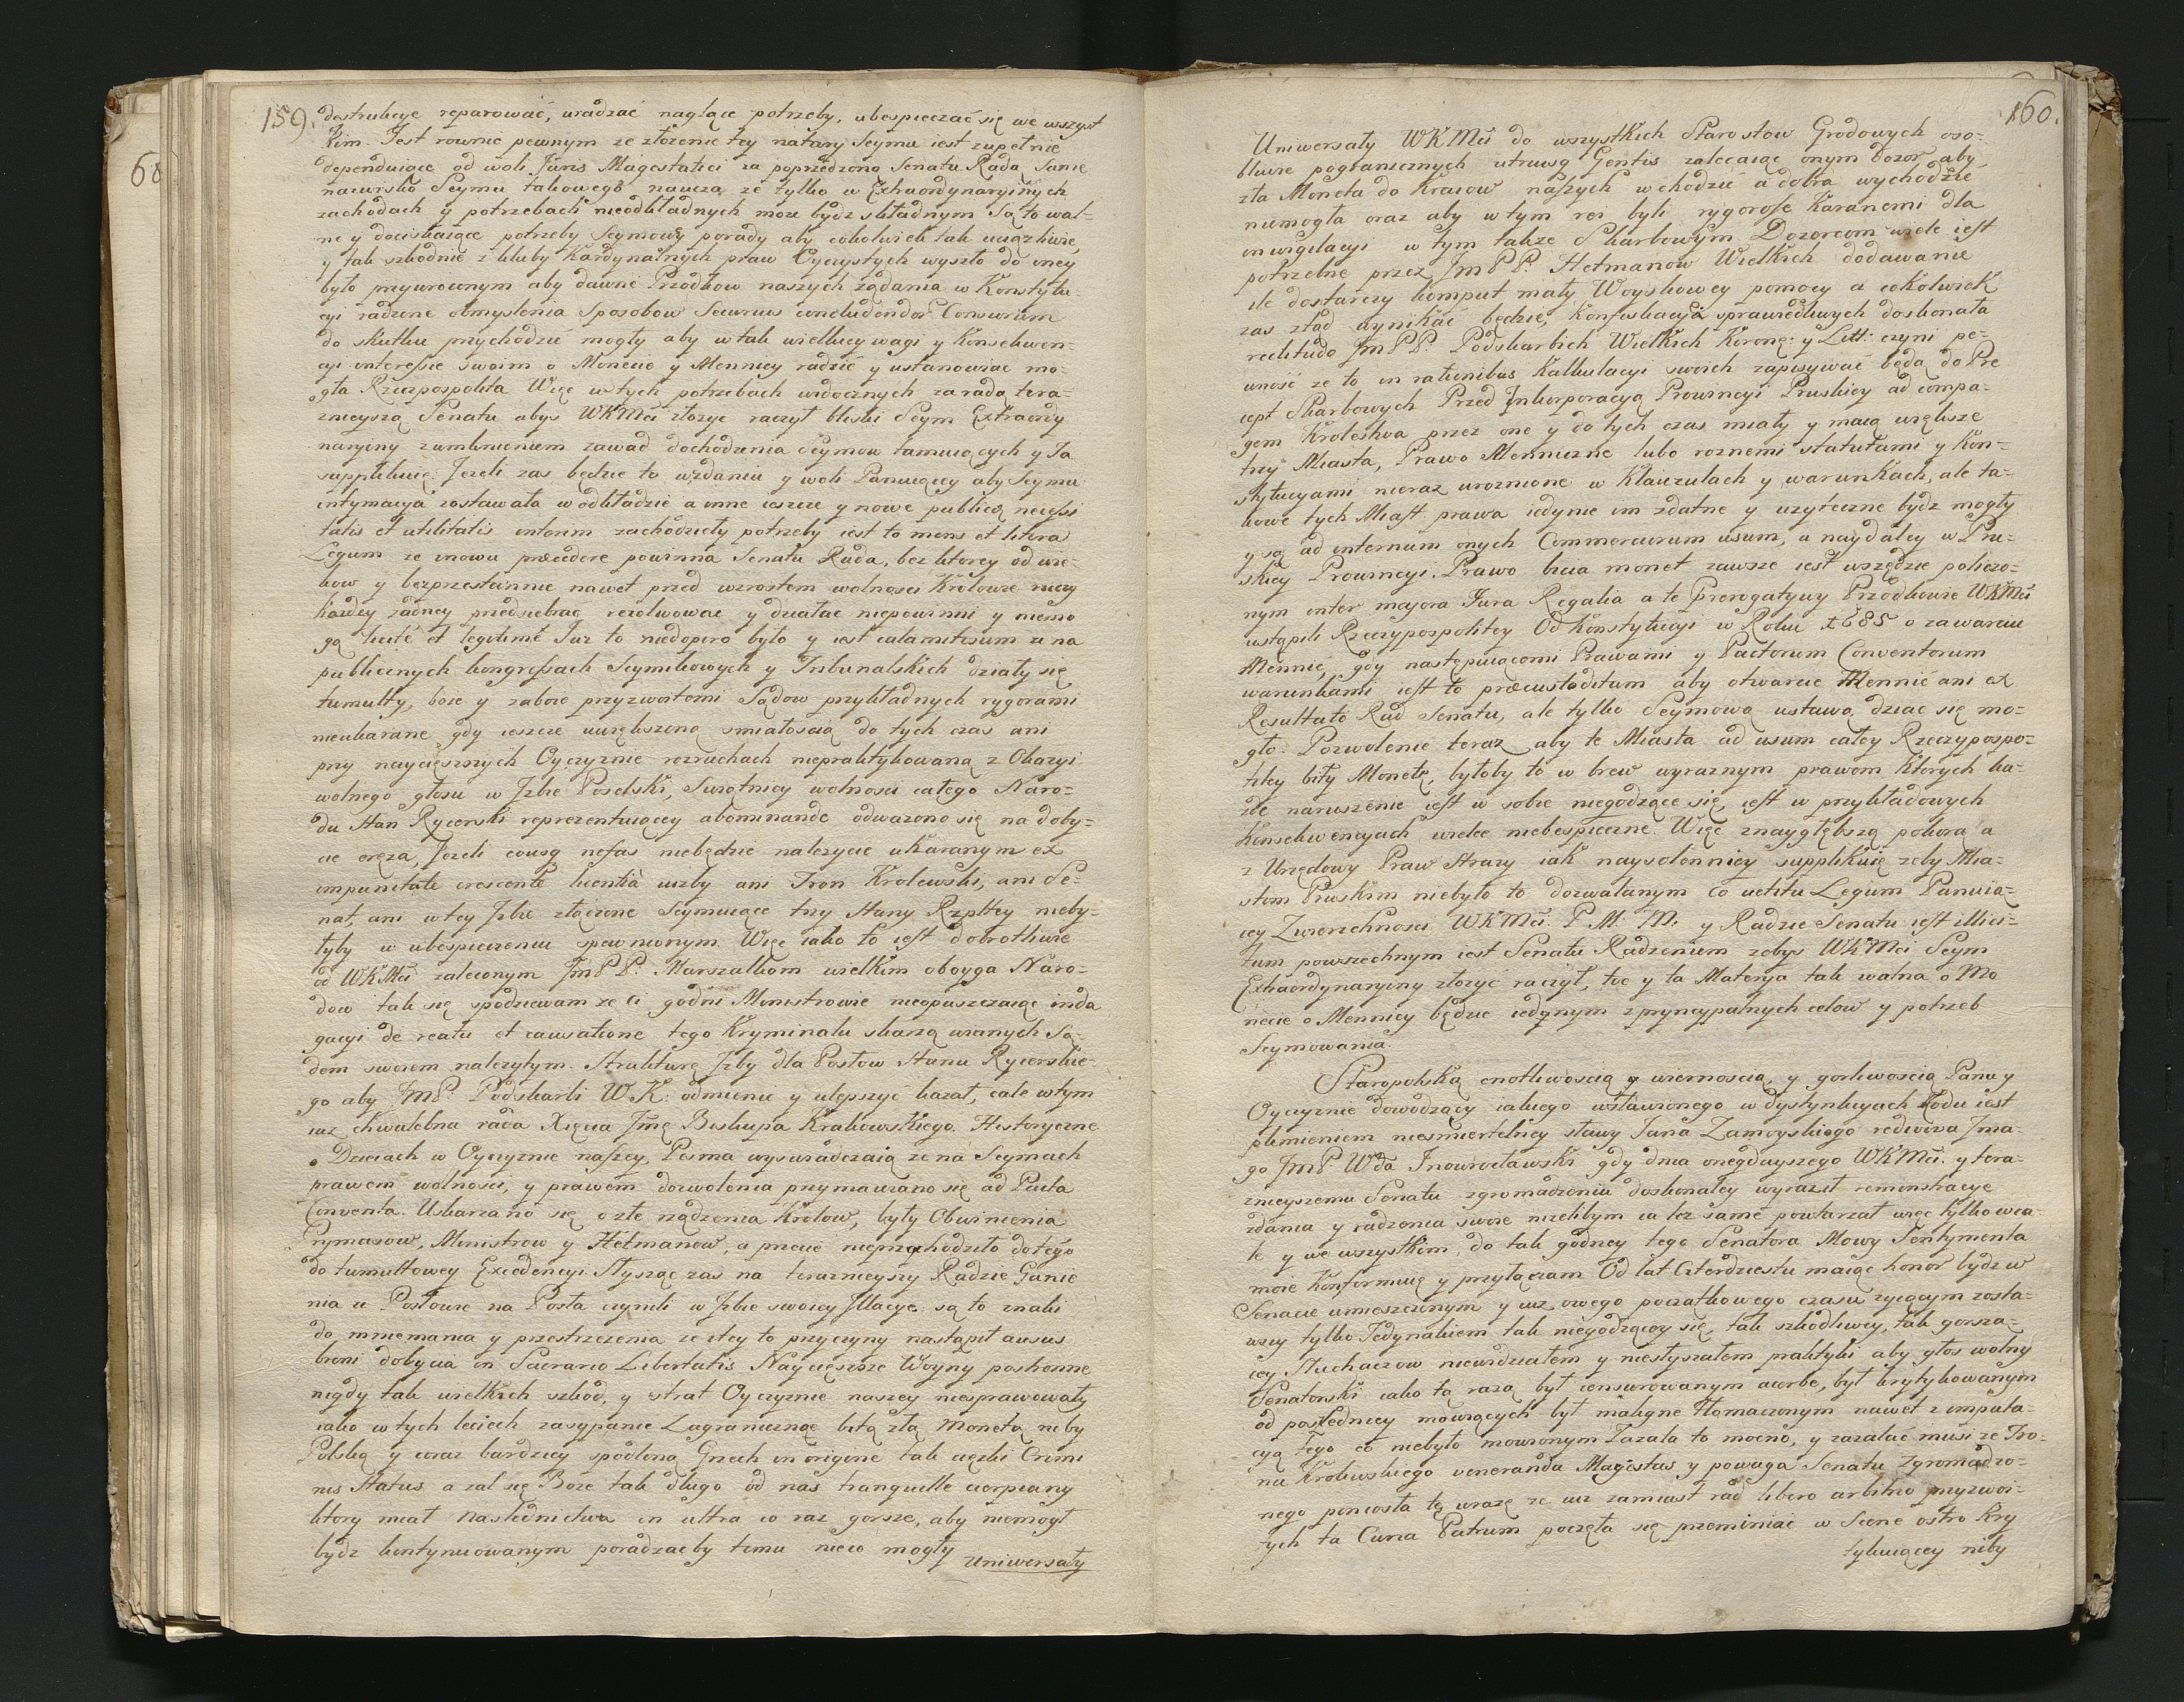 159.
destrukcye reparować, uradzać naglące potrzeby, ubespieczać się we wszyst
kim. Jest rownie pewnym ze złozenie tey natury Seymu iest zupełnie
dependuiące od woli Juris Magestatici za poprzedzoną Senatu Radą Samę
nazwisko Seymu takowego nauczą, ze tylko w Extraordynaryinych
zachodach y potrzebach nieodkładnych moze bydz składnym Są to wal-
ne y dociskaiące potrzeby Seymowey porady aby cokolwiek tak uciązliwie,
y tak szkodnie z kluby Kardynalnych praw Oyczystych wyszło do oney
było przywroconym aby dawne Przodkow naszych ządania w Konstytu
cyi radzone obmyslenia Sposobow Securius concludendor Consiliorum
do skutku przychodzić mogły aby w tak wielkiey wagi y Konsekwen-
cyi interesie swoim o Monecie y Mennicy radzić y ustanowiac mo-
gła Rzeczpospolita Więc w tych potrzebach widocznych za radą tera-
znieyszą Senatu abys WKMć złozyc raczył bliski Seym Extraordy
naryiny zamknieniem zawad dochodzenia Seymow tamuiących y Ja
supplikuię: Jezeli zas będzie to w zdaniu y woli Panuiącey aby Seymu
intymacya zostawała w odkładzie a inne ieszcze y nowe publicæ necessi
tatis et utilitatis interim zachodziły potrzeby iest to mens et litera
Legum ze znowu præcedere powinna Senatu Rada, bez ktorey od wie-
kow y bezprzestannie nawet przed wzrostem wolnosci Krolowie rzeczy
kazdey zadney przedsiebrac rezolwowac y działac niepowinni y niemo
gą licitè et legitimè Juz to niedopiero było y iest calamitosum ze na
publicznych kongressach Seymikowych y Trybunalskich działy się
tumulty, boie y zaboie przyzwoitemi Sądow przykładnych rygorami
nieukarane, gdy ieszcze uwiększoną smiałoscią do tych czas ani
przy naycięszszych Oyczyznie rozruchach niepraktykowaną z Okazyi
wolnego głosu w Jzbie Poselski, Swiątnicy wolnosci całego Naro-
du Stan Rycerski reprezentuiącey abominande odwazono się na doby-
cie oręza, Jezeli eousq nefas niebędzie nalezycie ukaranym ex
impunitate crescente licentià wzby ani Tron Krolewski, ani Se-
nat, ani w tey Jzbie złączone Seymuiące trzy Stany Rzpltey nieby-
łyby w ubespieczeniu spewnionym Więc iako to iest dobrotliwie
od WKMći zaleconym JmPP: Marszałkom wielkim oboyga Naro-
dow tak się spodziewam ze ci godni Ministrowie nieopuszczaiąc inda
gacyi de reatu et causatione tego Kryminału skarzą winnych Są-
dem swoiem nalezytym. Strukturę Jzby dla Posłow Stanu Rycerskie-
go aby JmP: Podskarbi W.K: odmienić y ulepszyć kazał, cale w tym
iuz chwalebna rada Xięcia Jmę Biskupa Krakowskiego. Historyczne
o Dzieiach w Oyczyznie naszey Pisma wyswiadczaią ze na Seymach
prawem wolnosci, y prawem dozwolenia przymawiano się ad Pacta
Conventa. Uskarzano się o złe rządzenia krolow, były Obwinienia
Prymasow, Ministrow y Hetmanow, a przecie nieprzychodziło do tego
do tumultowey Excedencyi Słysząc zas na terazniejszy Radzie Ganie
nia ze Posłowie na Posła czynili w Jzbie swoiey Jllacye są to znaki
do mniemania y przestrzezenia ze z tey to przyczyny nastąpił ausus
broni dobycia in Sacrario Libertatis Naycięszsze Woyny postronne
nigdy tak wielkich szkod, y strat Oyczyznie naszey niesprawowały
iako w tych leciech zasypanie Zagraniczną bitą złą monetą niby
Polską y coraz bardziey spodloną Grzech in origine tak cięzki Crimi
nis Status a zal się Boze tak długo od nas tranquille cierpiany
ktory miał naslednictwa in ultra co raz gorsze, aby niemogł
bydz kontynuowanym poradzacby temu nieco mogły
Uniwersały
160.
Uniwersały WKMći do wszystkich Starostow Grodowych oso-
bliwie pogranicznych utriusq Gentis zalecaiąc onym dozor, aby
zła Moneta do Kraiow naszych wchodzić a dobra wychodzić
niemogła oraz aby w tym rei byli rygorose karanemi dla
inwigilacyi w tym takze Skarbowym Dozorcom wiele iest
potrzebne przez JmPP: Hetmanow Wielkich dodawanie
ile dostarczy komput mały Woyskowey pomocy a cokolwiek
zas ztąd wynikać będzie, konfiskacya sprawiedliwych doskonała
rectitudo JmPP: Podskarbich Wielkich Koronę: y Litt: czyni pe-
wność ze to in rationibus Kalkulacyi swoich zapisywać będą do Pre
cept Skarbowych Przed Jnkorporacyą Prowincyi Pruskiey ad compa-
gem Krolestwa przez one y do tych czas miały y maią większe
trzy Miasta, Prawo Mennicznę lubo roznemi statutami y Kon-
stytucyami nieraz uroznione w Klauzulach y warunkach, ale ta-
kowe tych Miast prawa iedynie im zdatne y uzyteczne bydz mogły
y są ad internum onych Commerciorum usum, a naydaley w Pru-
skiey Prowincyi. Prawo bicia monet zawsze iest wszędzie policzo-
nym inter majora Jura Regalia a te Prerogatywy Przodkowie WKMći
ustąpili Rzeczypospolitey Od Konstytucyi w Roku 1685 o zawarciu
Mennic, gdy następuiącemi Prawami y Pactorum Conventorum
warunkami iest to præcustoditum aby otwarcie Mennic ani ex
Resultato Rad Senatu, ale tylko Seymową ustawą dziac się mo-
gło. Pozwolenie teraz aby te Miasta ad usum całey Rzeczypospo-
litey biły Monetę, byłoby to w brew wyraznym prawom ktorych ka-
zde naruszenie iest w sobie niegodzące się, iest w przykładowych
Konsekwencyach wielce niebespieczne. Więc znaygłębszą pokorą a
z Urzędowy Praw strazy iak naysolenniey supplikuię zeby Mia-
stom Pruskim niebyło to dozwalanym co vetitu Legum Panuią-
cey Zwierzchnosci WKMći P.M.M. y Radzie Senatu iest illici-
tum powszechnym iest Senatu Radzeniem zebys WKMći Seym
Extraordynaryiny złozyć raczył, toc y ta Materya tak walna o Mo
necie o Mennicy będzie iedynym z pryncypalnych celow y potrzeb
Seymowania.
Staropolską cnotliwoscią y wiernoscią, y gorliwoscią Panu y
Oyczyznie dowodzący iakiego wsławionego w dystynkcyach Rodu iest
plemieniem niesmiertelney sławy Jana Zamoyskiego rediviva Jma-
go JmP: Wda Inowrocławski gdy dnia onegdayszego WKMći. y tera-
znieyszemu Senatu zgromadzeniu doskonałey wyraził remonstracye
zdania y radzenia swoie nizelibym ia tez same powtarzał więc tylko wca-
le y we wszystkim, do tak godney tego Senatora Mowy Sentymenta
moie Konformuię y przyłączam Od lat Czterdziestu maiąc honor bydz w
Senacie umieszczonym y iuz owego początkowego czasu zyiącym zosta-
wszy tylko Jedynakiem tak niegodzącey się, tak szkodliwey, tak gorszą-
cey Słuchaczow niewidziałem y niesłyszałem praktyki aby głos wolny
Senatorski iako tą razą był censurowanym acerbe, był krytykowanym
od posledniey mowiących był maligne tłomaczonym nawet z imputa-
cyą tego co niebyło mowionym Zazala to mocno, y zazalać musi ze Tro-
nu Krolewskiego veneranda Magestas y powaga Senatu Zgromadzo-
nego poniosła tę urazę ze iuz zamiast rad libero arbitrio przyzwoi-
tych ta Curia Patrum poczęła się przeminiać w Scene ostro Kry
tykuiącey niby